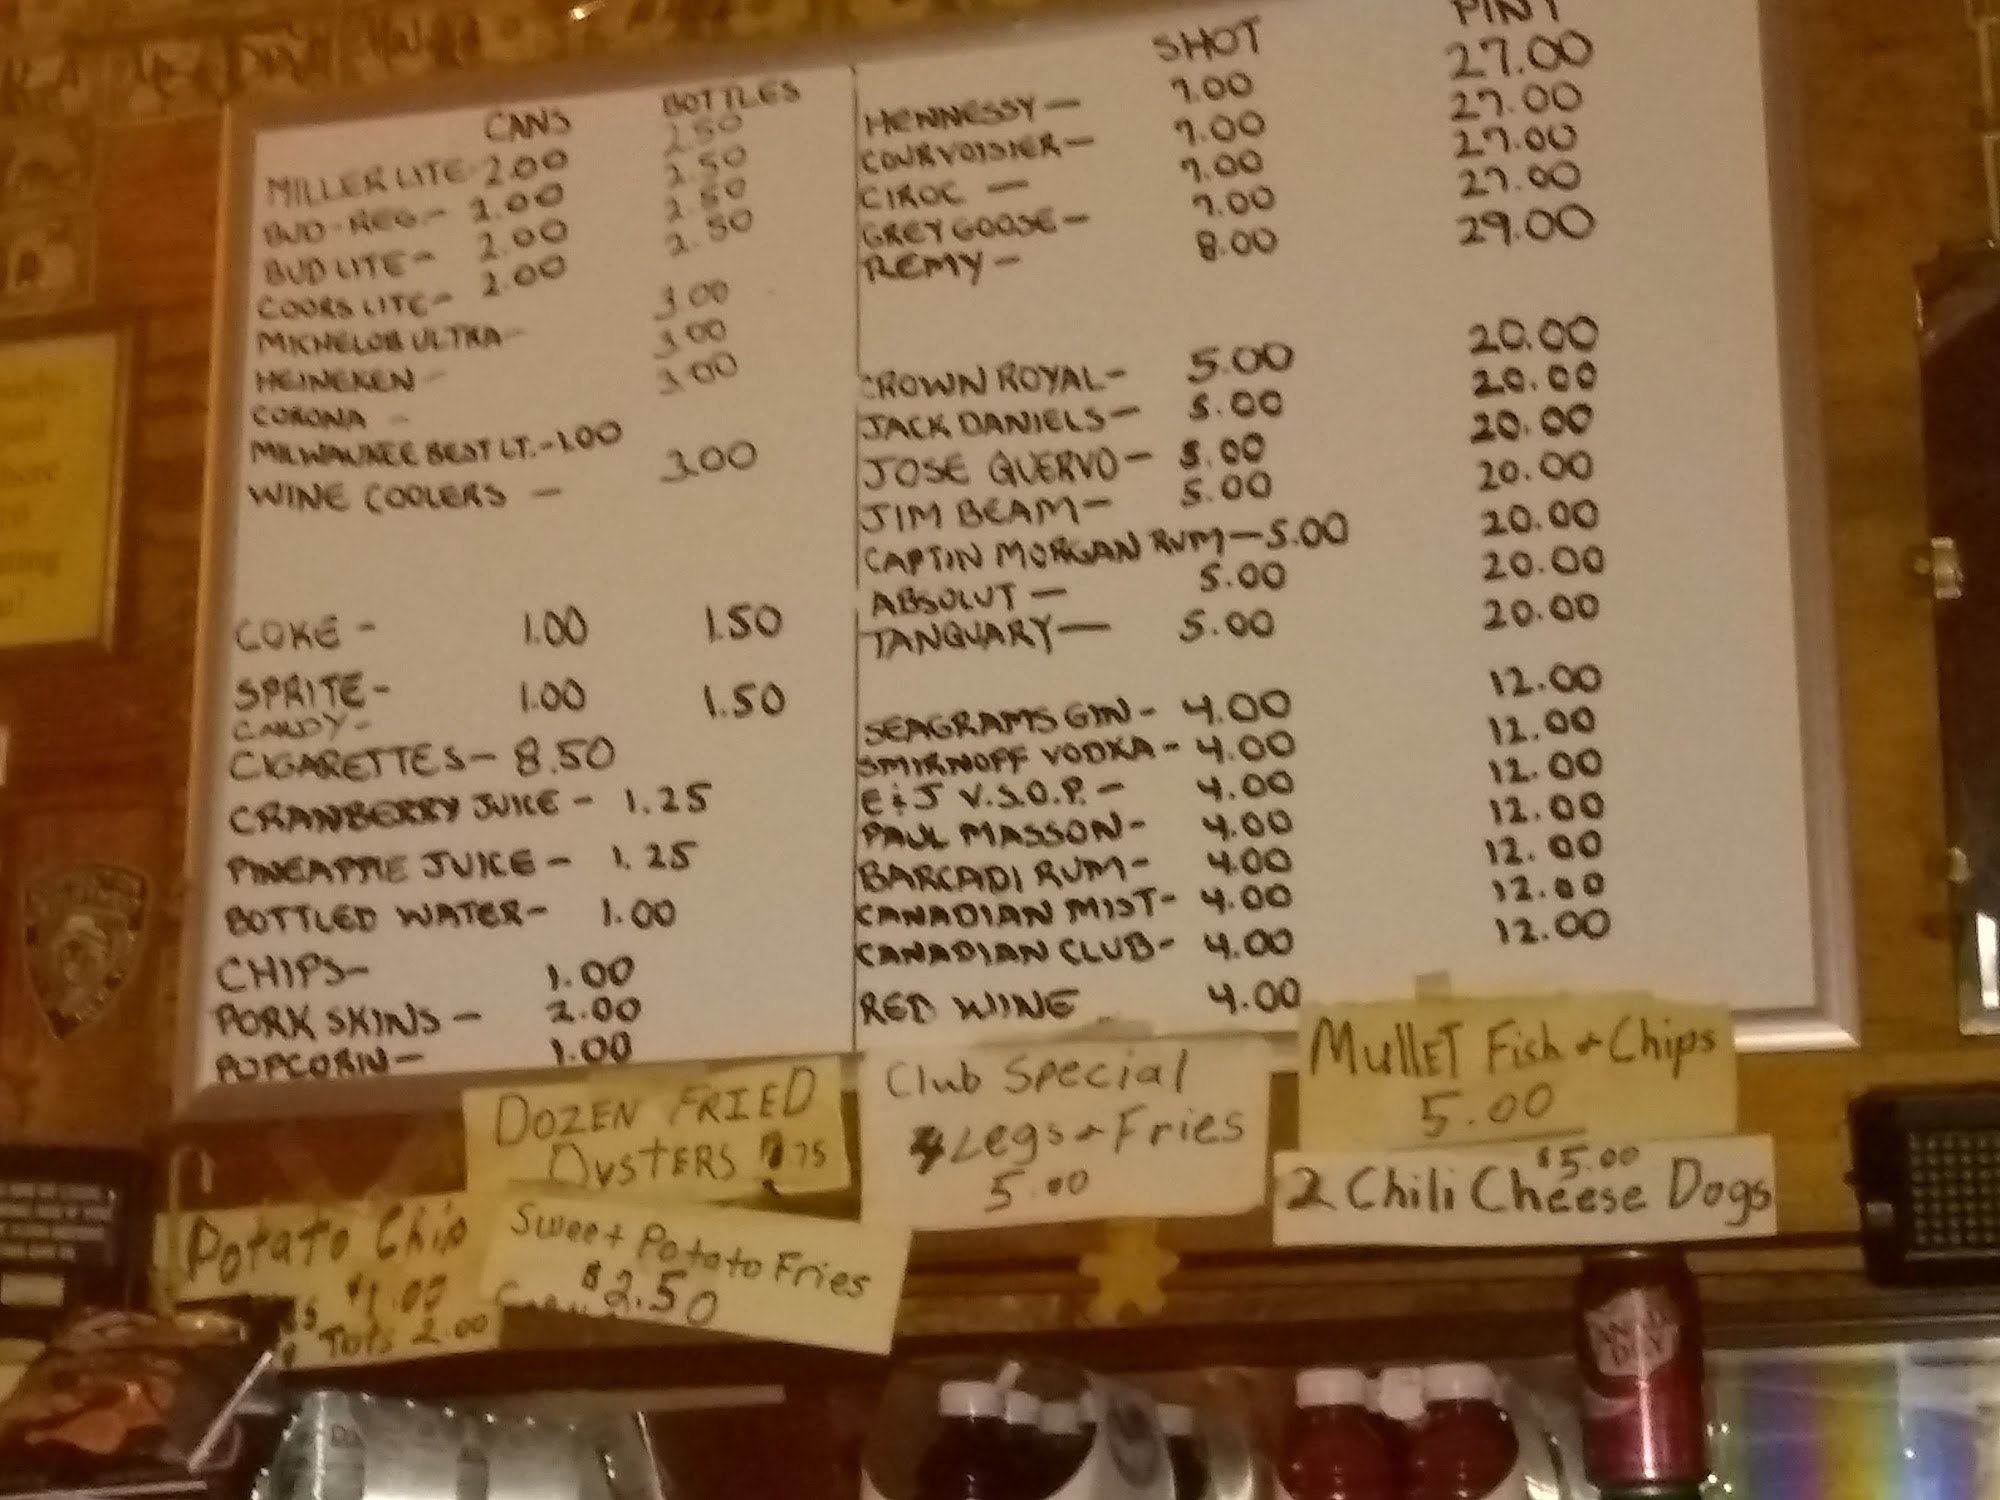 CANS BOTTLES
MILLER LITE- 2.00 2.50
BUD-REG.- 2.00 2.50
BUD LITE- 2.00 2.50
COORS LITE- 2.00 2.50
MICHELOB ULTRA- 3.00
HEINEKEN - 3.00
CORONA - 3.00
MILWAUKEE BEST LT.-1.00
WINE COOLERS - 3.00
COKE - 1.00 1.50
SPRITE- 1.00 1.50
CANDY-
CIGARETTES- 8.50
CRANBERRY JUICE - 1.25
PINEAPPLE JUICE - 1.25
BOTTLED WATER- 1.00
CHIPS- 1.00
PORK SKINS - 2.00
POPCORIN- 1.00
SHOT PINT
HENNESSY- 7.00 27.00
COURVOISIER- 7.00 27.00
CIROC - 7.00 27.00
GREY GOOSE- 7.00 27.00
REMY- 8.00 29.00
CROWN ROYAL- 5.00 20.00
JACK DANIELS- 5.00 20.00
JOSE QUERVO- 5.00 20.00
JIM BEAM- 5.00 20.00
CAPTIN MORGAN RUM-5.00 20.00
ABSOLUT - 5.00 20.00
TANQUARY- 5.00 20.00
SEAGRAMS GIN- 4.00 12.00
SMIRNOFF VODKA- 4.00 12.00
E&J V.S.O.P.- 4.00 12.00
PAUL MASSON- 4.00 12.00
BARCADI RUM- 4.00 12.00
CANADIAN MIST- 4.00 12.00
CANADIAN CLUB- 4.00 12.00
RED WINE 4.00
DOZEN FRIED
OYSTERS 7.75
Club Special
4 Legs + Fries
5.00
MulleT Fish + Chips
5.00
$5.00
2 Chili Cheese Dogs
Potato Chip
$1.00
Tots 2.00
Sweet Potato Fries
$2.50